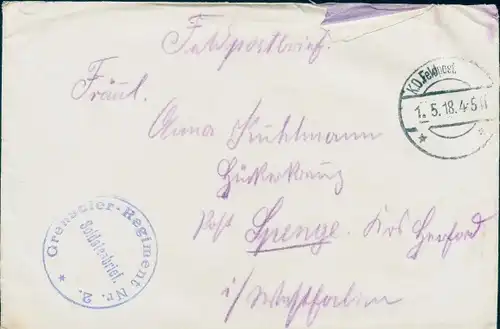 Feldpostbrief.
K.D. Feldpost.
1. 5. 18. 4-5 N
Fräul.
Anna Kuhlmann
Hückerkreuz
Post Spenge. Krs Herford
i/Westfalen
* Grenadier-Regiment Nr. 2. *
Soldatenbrief.